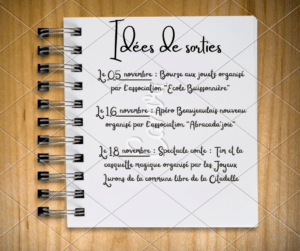 Idées de sorties
Le 05 novembre : Bourse aux jouets organisé
par l'association "Ecole Buissonnière"
Le 16 novembre : Apéro Beaujeulais nouveau
organisé par l'association "Abracada'joie"
Le 18 novembre : Spectacle conte : Tim et la
casquette magique organisé par les Joyeux
Lurons de la commune libre de la Citadelle